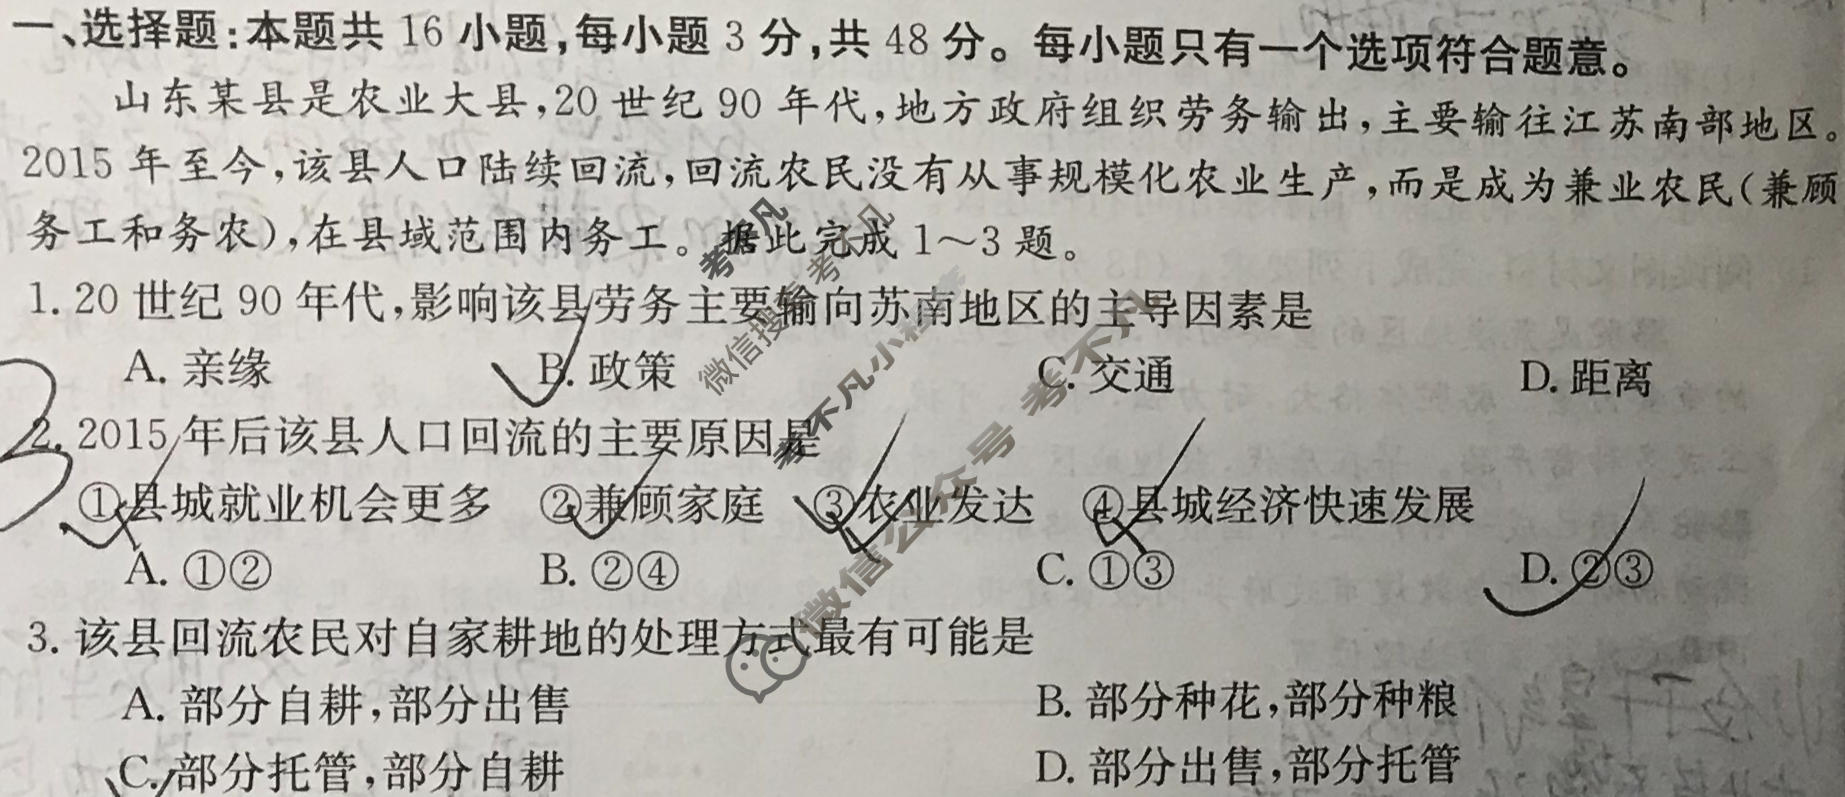 一、选择题:本题共 16 小题,每小题 3 分,共 48 分。每小题只有一个选项符合题意。
山东某县是农业大县,20 世纪 90 年代,地方政府组织劳务输出,主要输往江苏南部地区。
2015 年至今,该县人口陆续回流,回流农民没有从事规模化农业生产,而是成为兼业农民(兼顾
务工和务农),在县域范围内务工。据此完成 1~3 题。
1. 20 世纪 90 年代,影响该县劳务主要输向苏南地区的主导因素是
A. 亲缘 B. 政策 C. 交通 D. 距离
2. 2015 年后该县人口回流的主要原因是
①县城就业机会更多 ②兼顾家庭 ③农业发达 ④县城经济快速发展
A. ①② B. ②④ C. ①③ D. ②③
3. 该县回流农民对自家耕地的处理方式最有可能是
A. 部分自耕,部分出售 B. 部分种花,部分种粮
C. 部分托管,部分自耕 D. 部分出售,部分托管
3
考不凡
微信搜索 考不凡
考不凡小程序
微信公众号 考不凡